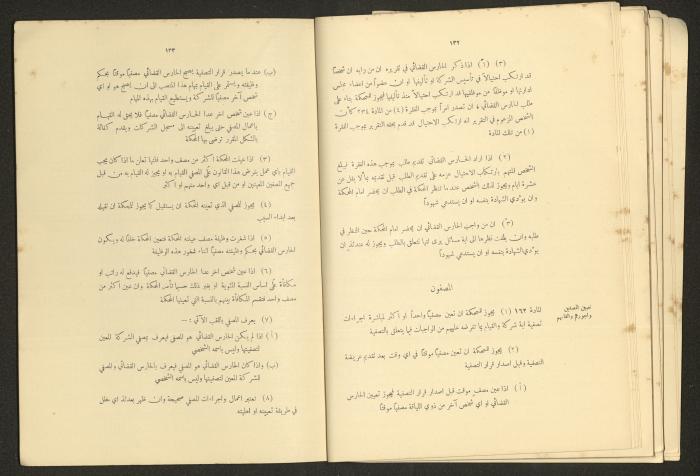 ١٣٢
(٣) (٦) اذا ذكر الحارس القضائي في تقريره ان من رايه ان شخصاً
قد ارتكب احتيالاً في تأسيس الشركة او تأليفها او ان عضواً من اعضاء مجلس
ادارتها او موظفاً من موظفيها قد ارتكب احتيالاً منذ تأليفها فيجوز للمحكمة بناء على
طلب الحارس القضائي ان تصدر امراً بموجب الفقرة (٤) من المادة ٢٣٤ كأن
الشخص المزعوم في التقرير انه ارتكب الاحتيال قد قدم بحقه التقرير بموجب الفقرة
(١) من تلك المادة
(٢) اذا اراد الحارس القضائي تقديم طلب بموجب هذه الفقرة فيبلغ
الشخص المتهم بارتكاب الاحتيال عزمه على تقديم الطلب قبل تقديمه بما لا يقل عن
عشرة ايام ويجوز لذلك الشخص عندما تنظر المحكمة في الطلب ان يحضر امام المحكمة
وان يؤدي الشهادة بنفسه او ان يستدعي شهوداً
(٣) ان من واجب الحارس القضائي ان يحضر امام المحكمة حين النظر في
طلبه وان يلفت نظرها الى اية مسائل يرى انها تتعلق بالطلب ويجوز له عندئذ ان
يؤدي الشهادة بنفسه او ان يستدعي شهوداً
المصفون
تعيين المصفين
واجورهم والقابهم
المادة ١٦٣ (١) يجوز للمحكمة ان تعين مصفياً واحداً او اكثر لمباشرة اجراءات
تصفية اية شركة والقيام بما تفرضه عليهم من الواجبات فيما يتعلق بالتصفية
(٢) يجوز للمحكمة ان تعين مصفياً موقتاً في اي وقت بعد تقديم عريضة
التصفية وقبل اصدار قرار التصفية
(أ) اذا عين مصف موقت قبل اصدار قرار التصفية فيجوز تعيين الحارس
القضائي او اي شخص آخر من ذوي اللياقة مصفياً موقتاً
١٣٣
(ب) عندما يصدر قرار التصفية يصبح الحارس القضائي مصفياً موقتاً بحكم
وظيفته ويستمر على القيام بمهام هذا المنصب الى ان يصبح هو او اي
شخص آخر مصفياً للشركة ويستطيع القيام بهذه المهام
(ج) اذا عين شخص آخر عدا الحارس القضائي مصفياً فلا يحق له القيام
باعمال المصفي حتى يبلغ تعيينه الى مسجل الشركات ويقدم كفالة
بالشكل المقرر ترضى بها المحكمة
(٣) اذا عينت المحكمة اكثر من مصف واحد فانها تعلن ما اذا كان يجب
القيام باي عمل يفرض هذا القانون على المصفي القيام به او يجيز له القيام به من قبل
جميع المصفين المعينين او من قبل اي واحد منهم او اكثر
(٤) يجوز للمصفي الذي تعينه المحكمة ان يستقيل كما يجوز للمحكمة ان تقيله
بعد ابداء السبب
(٥) اذا شغرت وظيفة مصف عينته المحكمة فتعين المحكمة خلفاً له ويكون
الحارس القضائي بحكم وظيفته مصفياً اثناء شغور هذه الوظيفة
(٦) اذا عين شخص آخر عدا الحارس القضائي مصفياً فيدفع له راتب او
مكافأة على اساس النسبة المئوية او بغير ذلك حسبما تأمر المحكمة وان عين اكثر من
مصف واحد فتقسم المكافأة بينهم بالنسبة التي تعينها المحكمة
(٧) يعرف المصفي باللقب الآتي : —
(أ) اذا لم يكن الحارس القضائي هو المصفي فيعرف بمصفي الشركة المعين
لتصفيتها وليس باسمه الشخصي
(ب) واذا كان الحارس القضائي هو المصفي فيعرف بالحارس القضائي والمصفي
للشركة المعين لتصفيتها وليس باسمه الشخصي
(٨) تعتبر اعمال واجراءات المصفي صحيحة وان ظهر بعدئذ اي خلل
في طريقة تعيينه او اهليته